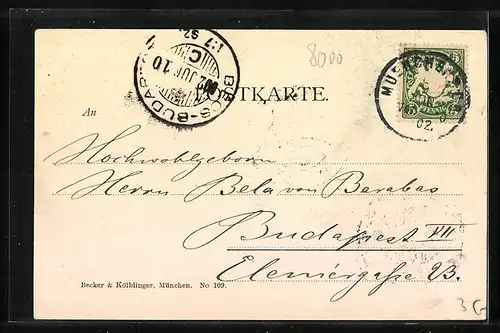 8000
BÉCS-BUDAPEST
902 JUN 10
C
5
MÜNCHEN
02.
POSTKARTE.
An
Hochwohlgeboren
Herrn Bela von Barabas
Budapest VII
Elemérgasse 23.
Becker & Kölblinger, München. No 109.
3G